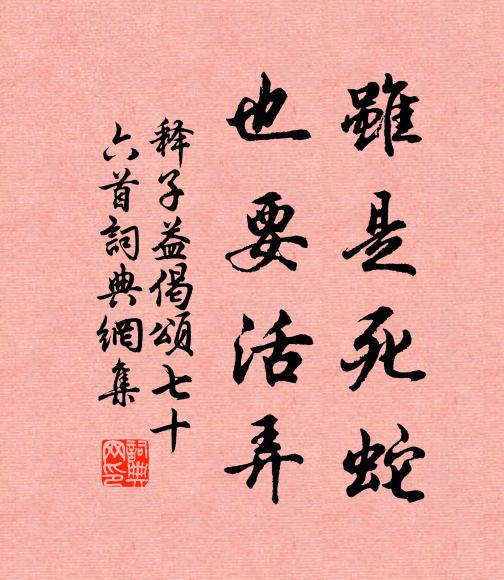 雖是死蛇
也要活弄
释子益偈頌七十
六首詞典網集
詞典網印